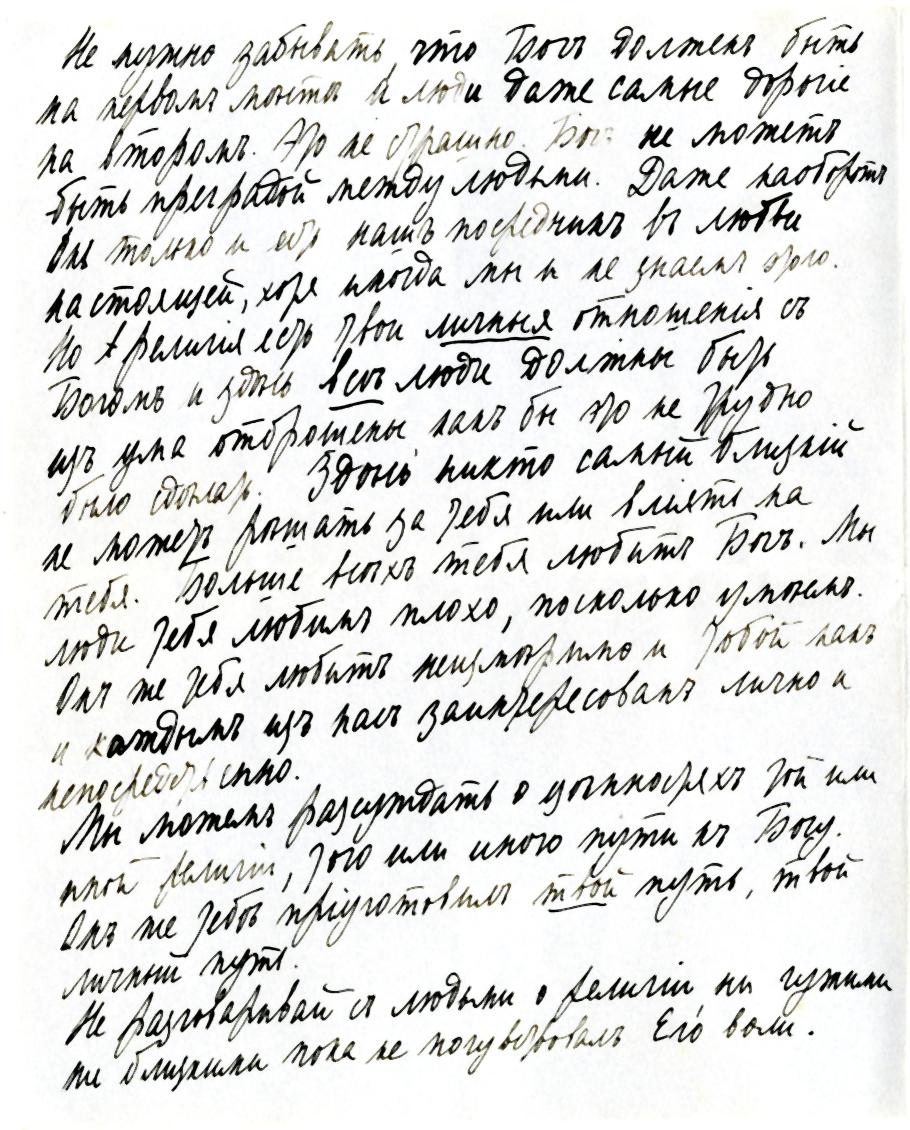 Не нужно забывать, что Богъ долженъ быть
на первомъ мѣстѣ и люди даже самые дорогіе
на второмъ. Это не страшно. Богъ не можетъ
быть преградой между людьми. Даже наоборотъ
Онъ только и есть нашъ посредникъ въ любви
настоящей, хотя иногда мы и не знаемъ этого.
Но религія есть твои личныя отношенія съ
Богомъ и здѣсь всѣ люди должны быть
изъ ума отброшены какъ бы это не трудно
было сдѣлать. Здѣсь никто самый близкій
не можетъ рѣшать за тебя или вліять на
тебя. Больше всѣхъ тебя любитъ Богъ. Мы
люди тебя любимъ плохо, посколько умѣемъ.
Онъ же тебя любитъ неизмѣримо и тобой какъ
и каждымъ изъ насъ заинтересованъ лично и
непосредственно.
Мы можемъ разсуждать о цѣнностяхъ той или
иной религіи, того или иного пути къ Богу.
Онъ же тебѣ пріуготовилъ твой путь, твой
личный путь.
Не разговаривай съ людьми о религіи ни чужими
ни близкими пока не почувствовалъ Его воли.